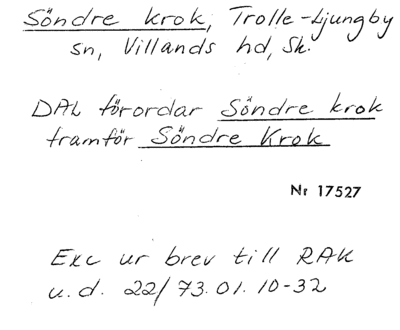 Söndre krok, Trolle-Ljungby
sn, Villands hd, Sk.
DAL förordar Söndre krok
framför Söndre Krok
Nr 17527
Exc ur brev till RAK
u.d. 22/73.01.10-32